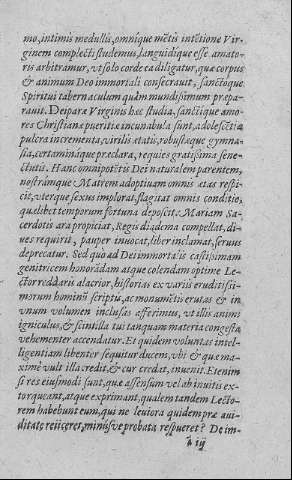 mo, intimis medullis, omnique mẽtis intẽtione Vir-
ginem complecti studemus, languidique esse amato-
ris arbitramur, vt solo corde ea diligatur, quæ corpus
& animum Deo immortali consecrauit, sanctoque
Spiritui tabernaculum quàm mundissimum præpa-
rauit. Deiparæ Virginis hæc studia, sanctique amo-
res Christianæ pueritiæ incunabula sunt, adolescẽtiæ
pulcra incrementa, virilis ætatis, robustæque gymna-
sia, certaminaque præclara, requies gratissima sene-
ctutis. Hanc omnipotẽtis Dei naturalem parentem,
nostrámque Matrem adoptiuam omnis ætas respi-
cit, vterque sexus implorat, flagitat omnis conditio,
quælibet temporum fortuna deposcit. Mariam Sa-
cerdotis ara propiciat, Regis diadema compellat, di-
ues requirit, pauper inuocat, liber inclamat, seruus
deprecatur. Sed quo ad Dei immortalis castissimam
genitricem honorãdam atque colendam optime Le-
ctor reddaris alacrior, historias ex variis eruditissi-
morum hominũ scriptis, ac monumẽtis erutas & in
vnum volumen inclusas afferimus, vt illis animi
igniculus, & scintilla tui tanquam materia congesta
vehementer accendatur. Et quidem voluntas intel-
ligentiam libenter sequitur ducem, vbi & quæ ma-
ximè vult illa credit, & cur credat, inuenit. Etenim
si res eiusmodi sunt, quæ assensum vel ab inuitis ex-
torqueant, atque exprimant, qualem tandem Lecto-
rem habebunt eum, qui ne leuiora quidem præ aui-
ditate reiiceret, minúsve probata respueret? De im-
ã iij